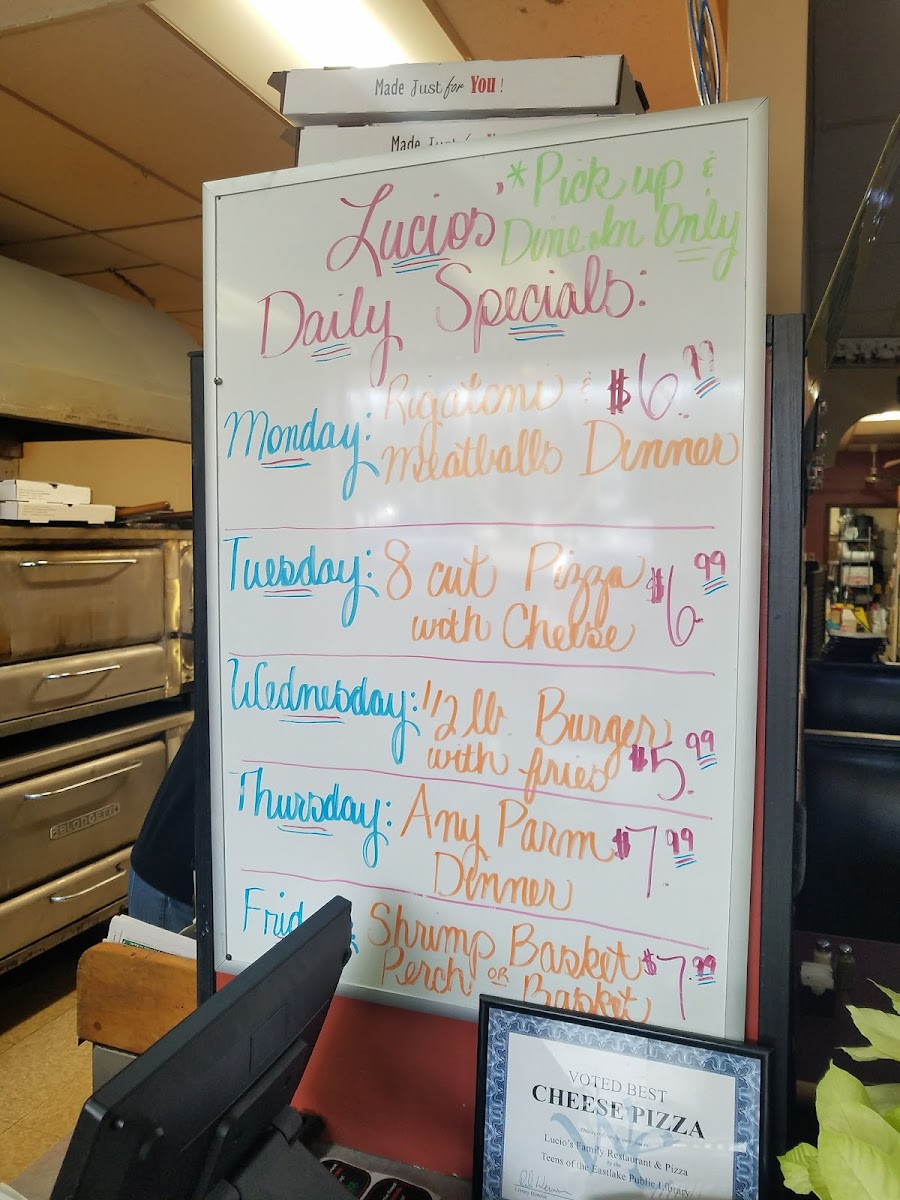 Made Just for You!
Made Just for
Lucios' *Pick up &
Dine In Only
Daily Specials:
Monday: Rigatoni & $6.99
Meatballs Dinner
Tuesday: 8 cut Pizza $6.99
with Cheese
Wednesday: 1/2 lb. Burger
with fries $5.99
Thursday: Any Parm $7.99
Dinner
Frid Shrimp Basket $7.99
Perch OR Basket
BLODGETT
VOTED BEST
CHEESE PIZZA
Lucio's Family Restaurant & Pizza
by the
Teens of the Eastlake Public Library